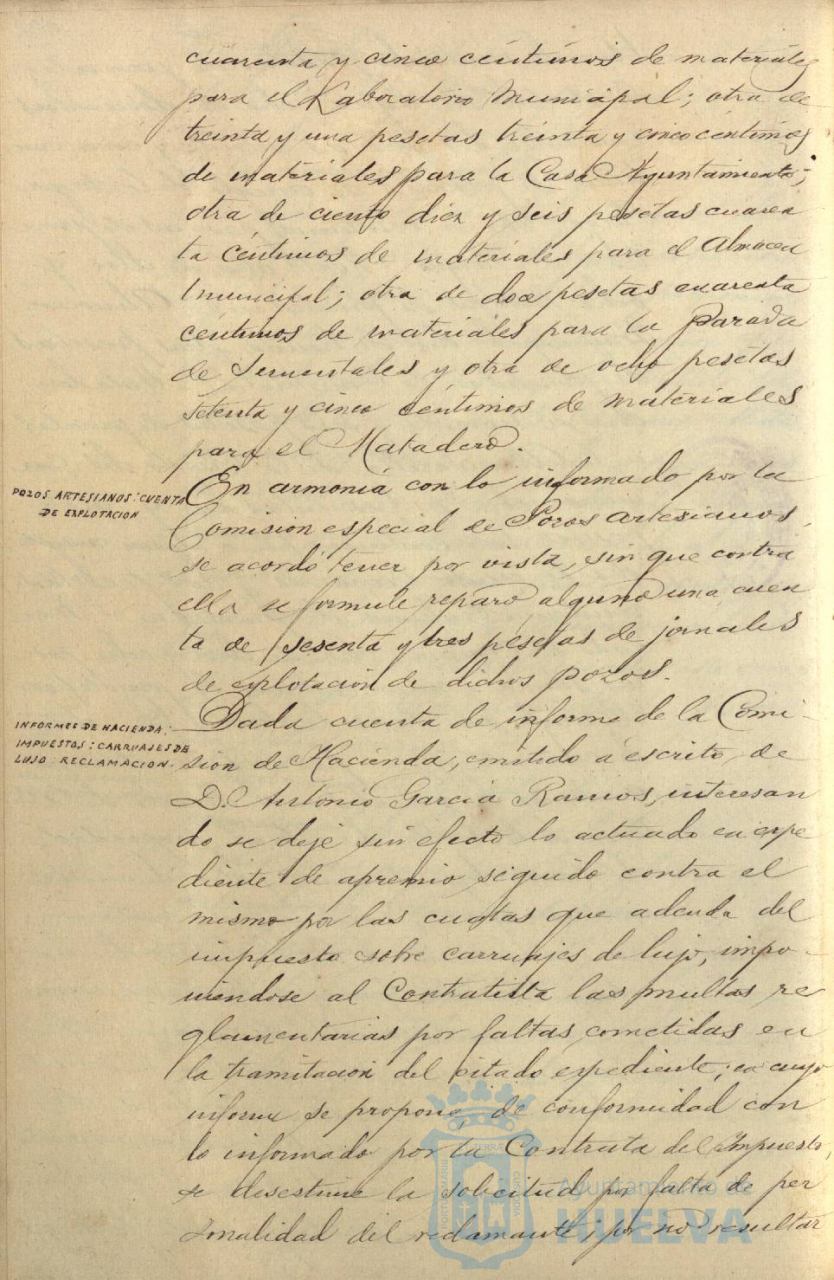 cuarenta y cinco céntimos de materiales
para el Laboratorio Municipal; otra de
treinta y una pesetas treinta y cinco céntimos
de materiales para la Casa Ayuntamiento;
otra de ciento diez y seis pesetas cuaren
ta céntimos de materiales para el Almacen
Municipal; otra de doce pesetas cuarenta
céntimos de materiales para la Parada
de Sementales y otra de ocho pesetas
setenta y cinco céntimos de materiales
para el Matadero.
POZOS ARTESIANOS: CUENTA
DE EXPLOTACION
En armonía con lo informado por la
Comision especial de Pozos artesianos,
se acordó tener por vista, sin que contra
ella se formule reparo alguno una cuen
ta de sesenta y tres pesetas de jornales
de explotación de dichos pozos.
INFORMES DE HACIENDA:
IMPUESTOS: CARRUAJES DE
LUJO RECLAMACION.
Dada cuenta de informe de la Comi-
sion de Hacienda, emitido á escrito, de
D. Antonio García Ramos, interesan
do se deje sin efecto lo actuado en expe
diente de apremio seguido contra el
mismo por las cuotas que adeuda del
impuesto sobre carruajes de lujo, impo-
niéndose al Contratista las multas re
glamentarias por faltas cometidas en
la tramitación del citado expediente; en cuyo
informe se propone, de conformidad con
lo informado por la Contrata del Impuesto,
se desestime la solicitud por falta de per
sonalidad del reclamante; por no resultar
Ayuntamiento de
HUELVA